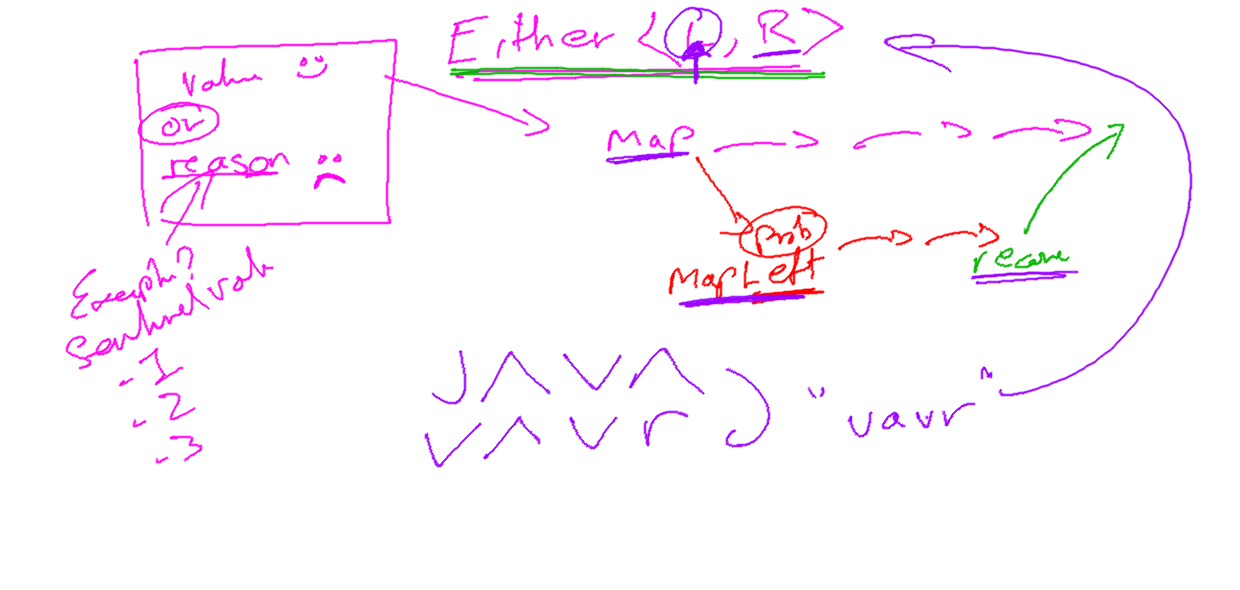 Either <L, R>
value
or
reason
Exception?
Sentinel value
-1
-2
-3
Map
prob
MapLeft
recover
JAVA
VAVr
"vavr"